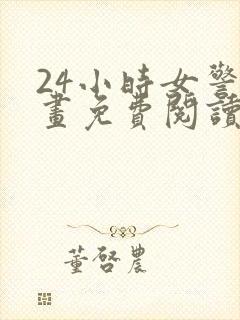 24小時女警
畫免費閱讀
董啓農